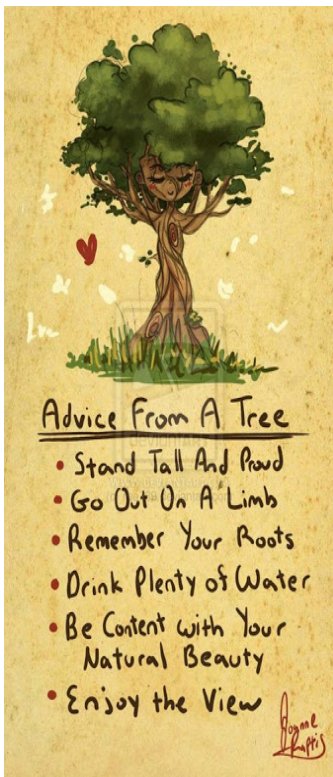 Advice From A Tree
• Stand Tall And Proud
• Go Out On A Limb
• Remember Your Roots
• Drink Plenty of Water
• Be Content with Your
Natural Beauty
• Enjoy the View